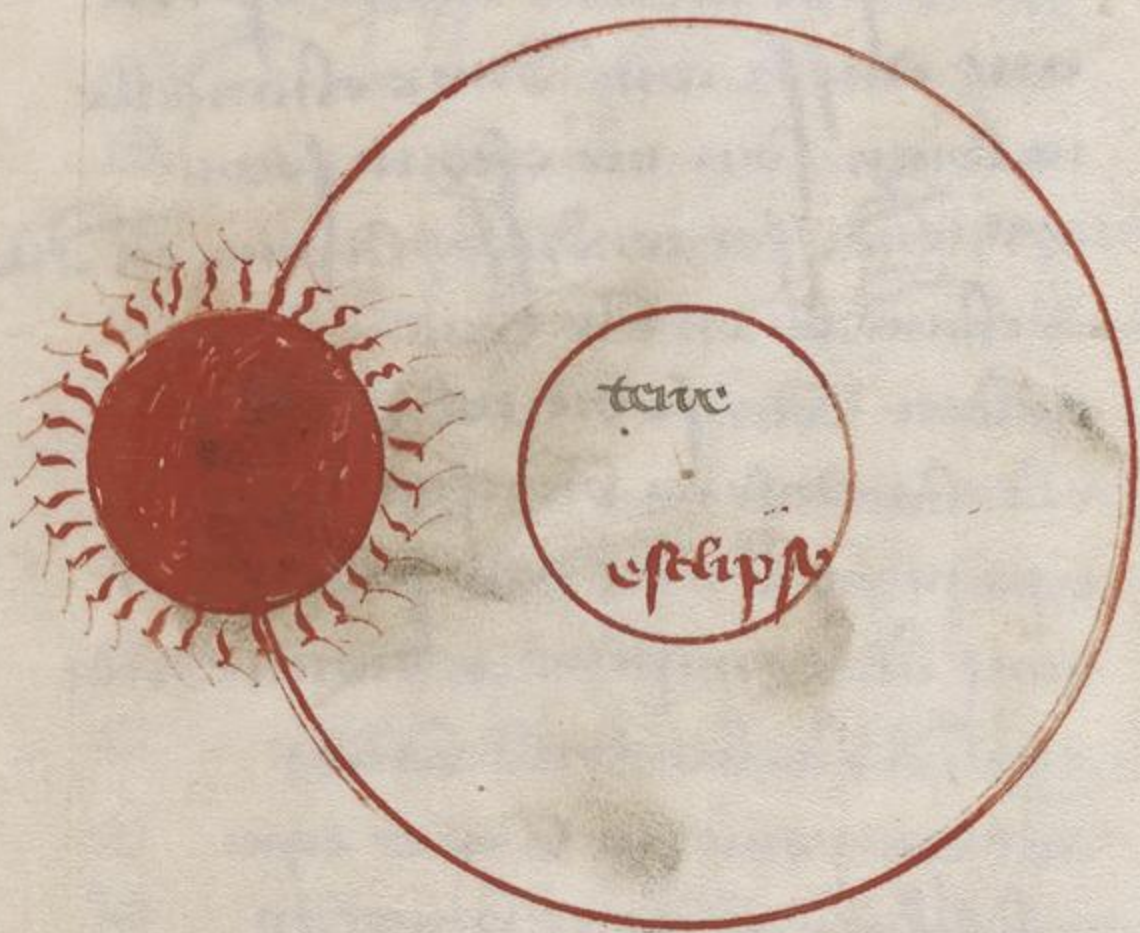 terre
esclipse